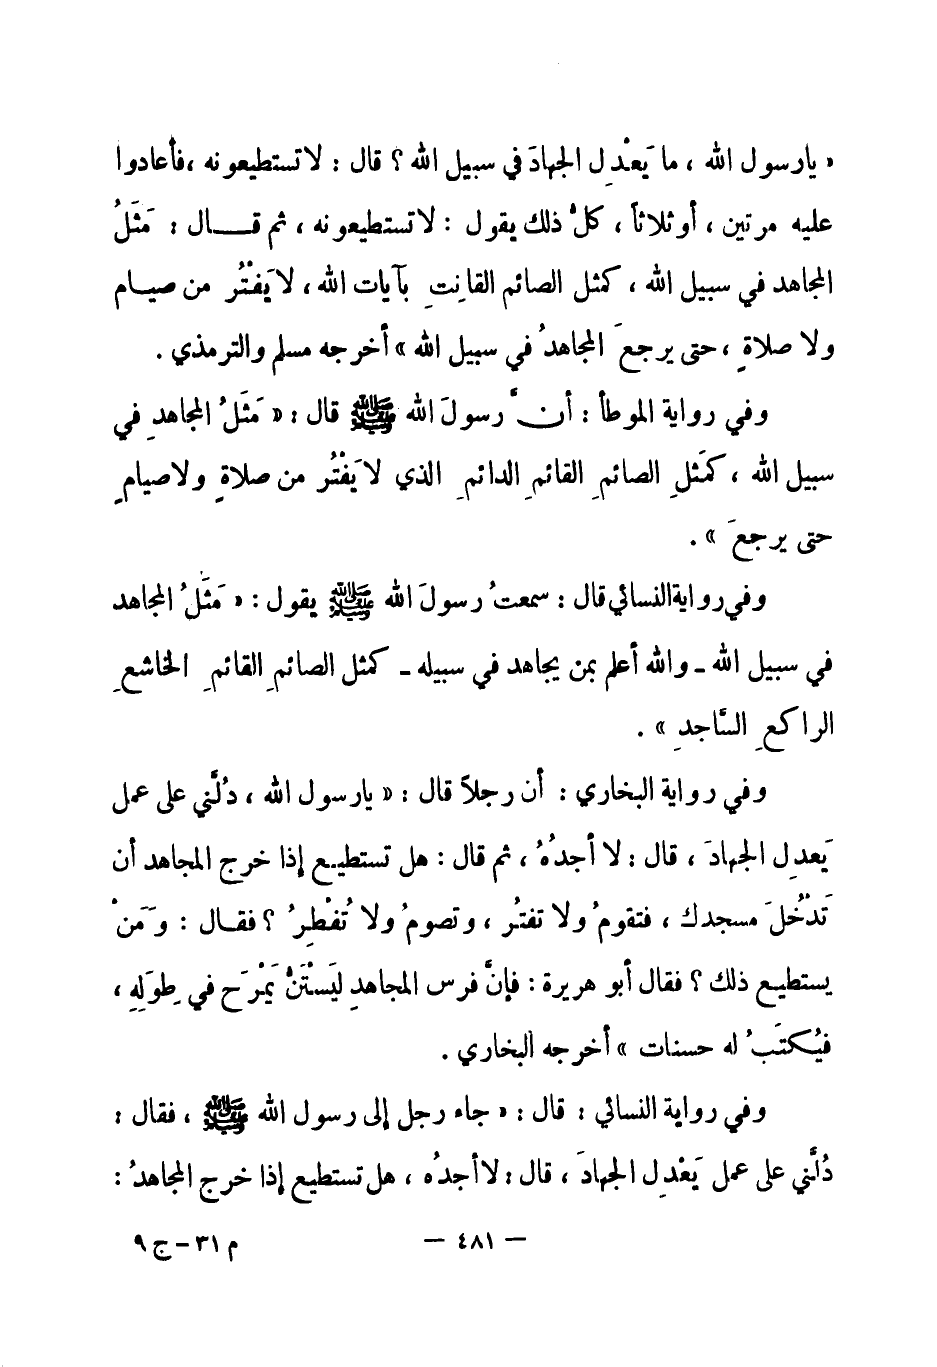 « يا رسول الله ، ما يَعْدِل الجهادَ في سبيل الله ؟ قال : لا تستطيعونه ، فأعادوا
عليه مرتين ، أو ثلاثاً ، كلُّ ذلك يقول : لا تستطيعونه ، ثم قــال : مَثَلُ
المجاهد في سبيل الله ، كمثل الصائم القانتِ بآيات الله ، لا يَفْتُر من صيـام
ولا صلاةٍ ، حتى يرجعَ المجاهدُ في سبيل الله » أخرجه مسلم والترمذي .
وفي رواية الموطأ : أنَّ رسولَ الله ﷺ قال : « مَثَلُ المجاهدِ في
سبيل الله ، كمَثَلِ الصائمِ القائمِ الدائمِ الذي لا يَفْتُر من صلاةٍ ولا صيامٍ
حتى يرجعَ » .
وفي رواية النسائي قال : سمعتُ رسولَ الله ﷺ يقول : « مَثَلُ المجاهد
في سبيل الله ـ والله أعلم بمن يجاهد في سبيله ـ كمثل الصائمِ القائمِ الخاشعِ
الراكعِ السَّاجدِ » .
وفي رواية البخاري : أن رجلاً قال : « يا رسول الله ، دُلَّني على عمل
يَعدِل الجهادَ ، قال : لا أجدُهُ ، ثم قال : هل تستطيـع إذا خرج المجاهد أن
تَدْخُلَ مسجدك ، فتقومُ ولا تفتُر ، وتصومُ ولا تُفْطِرُ ؟ فقـال : ومَنْ
يستطيـع ذلك ؟ فقال أبو هريرة : فإنَّ فرس المجاهدِ ليَسْتَنُّ يَمْرَح في طِوَلِهِ ،
فيُكتَبُ له حسنات » أخرجه البخاري .
وفي رواية النسائي : قال : « جاء رجل إلى رسول الله ﷺ ، فقال :
دُلَّني على عمل يَعْدِل الجهادَ ، قال : لا أجدُه ، هل تستطيع إذا خرج المجاهدُ :
— ٤٨١ —
م ٣١ – ج ٩